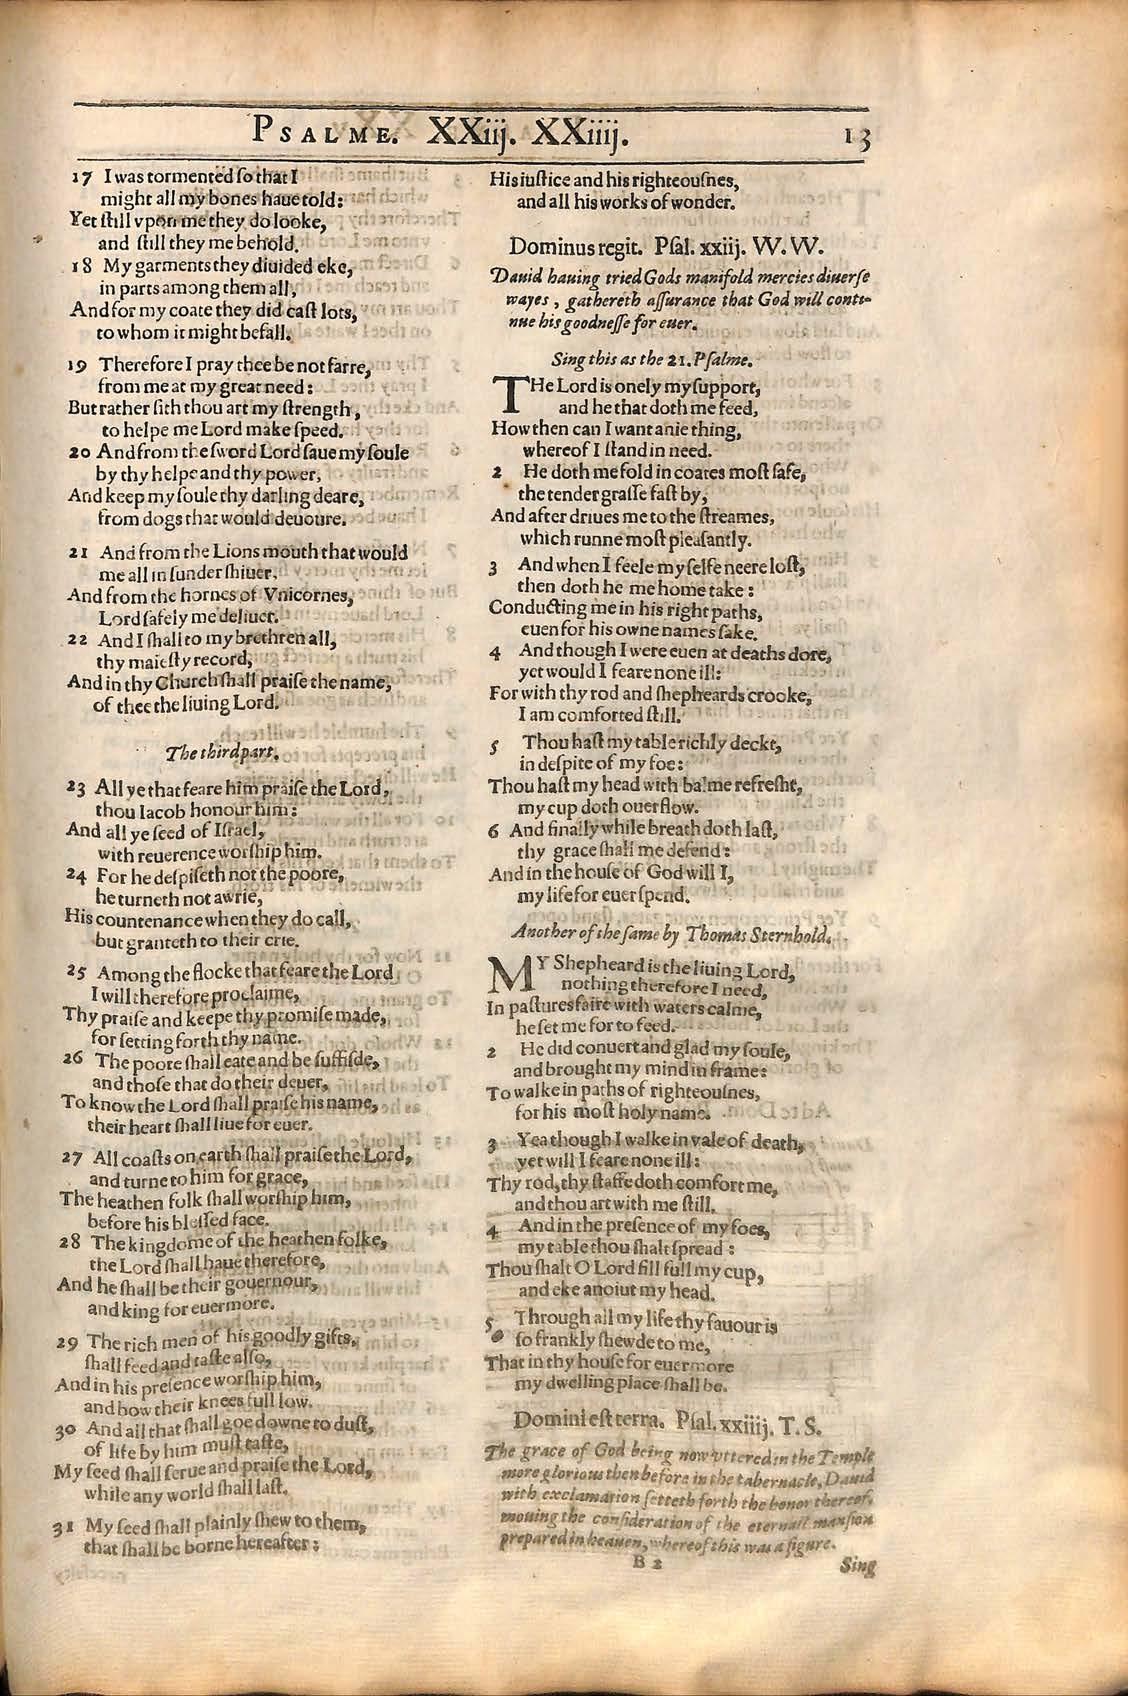 PSALME. XXiij. XXiiij. 13
17 I was tormented ſo that I
might all my bones haue told:
Yet ſtill vpon me they do looke,
and ſtill they me behold.
18 My garments they diuided eke,
in parts among them all,
And for my coate they did caſt lots,
to whom it might befall.
19 Therefore I pray thee be not farre,
from me at my great need:
But rather ſith thou art my ſtrength,
to helpe me Lord make ſpeed.
20 And from the ſword Lord ſaue my ſoule
by thy helpe and thy power,
And keep my ſoule thy darling deare,
from dogs that would deuoure.
21 And from the Lions mouth that would
me all in ſunder ſhiuer,
And from the hornes of Vnicornes,
Lord ſafely me deliuer.
22 And I ſhall to my brethren all,
thy maieſty record,
And in thy Church ſhall praiſe the name,
of thee the liuing Lord.
The third part.
23 All ye that feare him praiſe the Lord,
thou Iacob honour him:
And all ye ſeed of Iſrael,
with reuerence worſhip him.
24 For he deſpiſeth not the poore,
he turneth not awrie,
His countenance when they do call,
but granteth to their crie.
25 Among the flocke that feare the Lord
I will therefore proclaime,
Thy praiſe and keepe thy promiſe made,
for ſetting forth thy name.
26 The poore ſhall eate and be ſuffiſde,
and thoſe that do their deuer,
To know the Lord ſhall praiſe his name,
their heart ſhall liue for euer.
27 All coaſts on earth ſhall praiſe the Lord,
and turne to him for grace,
The heathen folk ſhall worſhip him,
before his bleſſed face.
28 The kingdome of the heathen folke,
the Lord ſhall haue therefore,
And he ſhall be their gouernour,
and king for euermore.
29 The rich men of his goodly gifts,
ſhall feed and taſte alſo,
And in his preſence worſhip him,
and bow their knees full low.
30 And all that ſhall goe downe to duſt,
of life by him muſt taſte,
My ſeed ſhall ſerue and praiſe the Lord,
while any world ſhall laſt.
31 My ſeed ſhall plainly ſhew to them,
that ſhall be borne hereafter:
His iuſtice and his righteouſnes,
and all his works of wonder.
Dominus regit. Pſal. xxiij. W. W.
Dauid hauing tried Gods manifold mercies diuerſe
wayes, gathereth aſſurance that God will conti-
nue his goodneſſe for euer.
Sing this as the 21. Pſalme.
THe Lord is onely my ſupport,
and he that doth me feed,
How then can I want anie thing,
whereof I ſtand in need.
2 He doth me fold in coates moſt ſafe,
the tender graſſe faſt by,
And after driues me to the ſtreames,
which runne moſt pleaſantly.
3 And when I feele my ſelfe neere loſt,
then doth he me home take:
Conducting me in his right paths,
euen for his owne names ſake.
4 And though I were euen at deaths dore,
yet would I feare none ill:
For with thy rod and ſhepheards crooke,
I am comforted ſtill.
5 Thou haſt my table richly deckt,
in deſpite of my foe:
Thou haſt my head with balme refreſht,
my cup doth ouerflow.
6 And finally while breath doth laſt,
thy grace ſhall me defend:
And in the houſe of God will I,
my life for euer ſpend.
Another of the ſame by Thomas Sternhold.
MY Shepheard is the liuing Lord,
nothing therefore I need,
In paſtures faire with waters calme,
he ſet me for to feed.
2 He did conuert and glad my ſoule,
and brought my mind in frame:
To walke in paths of righteouſnes,
for his moſt holy name.
3 Yea though I walke in vale of death,
yet will I feare none ill:
Thy rod, thy ſtaffe doth comfort me,
and thou art with me ſtill.
4 And in the preſence of my foes,
my table thou ſhalt ſpread:
Thou ſhalt O Lord fill full my cup,
and eke anoiut my head.
5 Through all my life thy fauour is
ſo frankly ſhewde to me,
That in thy houſe for euermore
my dwelling place ſhall be.
Domini eſt terra. Pſal. xxiiij. T. S.
The grace of God being now vttered in the Temple
more glorious then before in the tabernacle, Dauid
with exclamation ſetteth forth the honor thereof,
mouing the conſideration of the eternall manſion
prepared in heauen, whereof this was a figure.
B 2 Sing